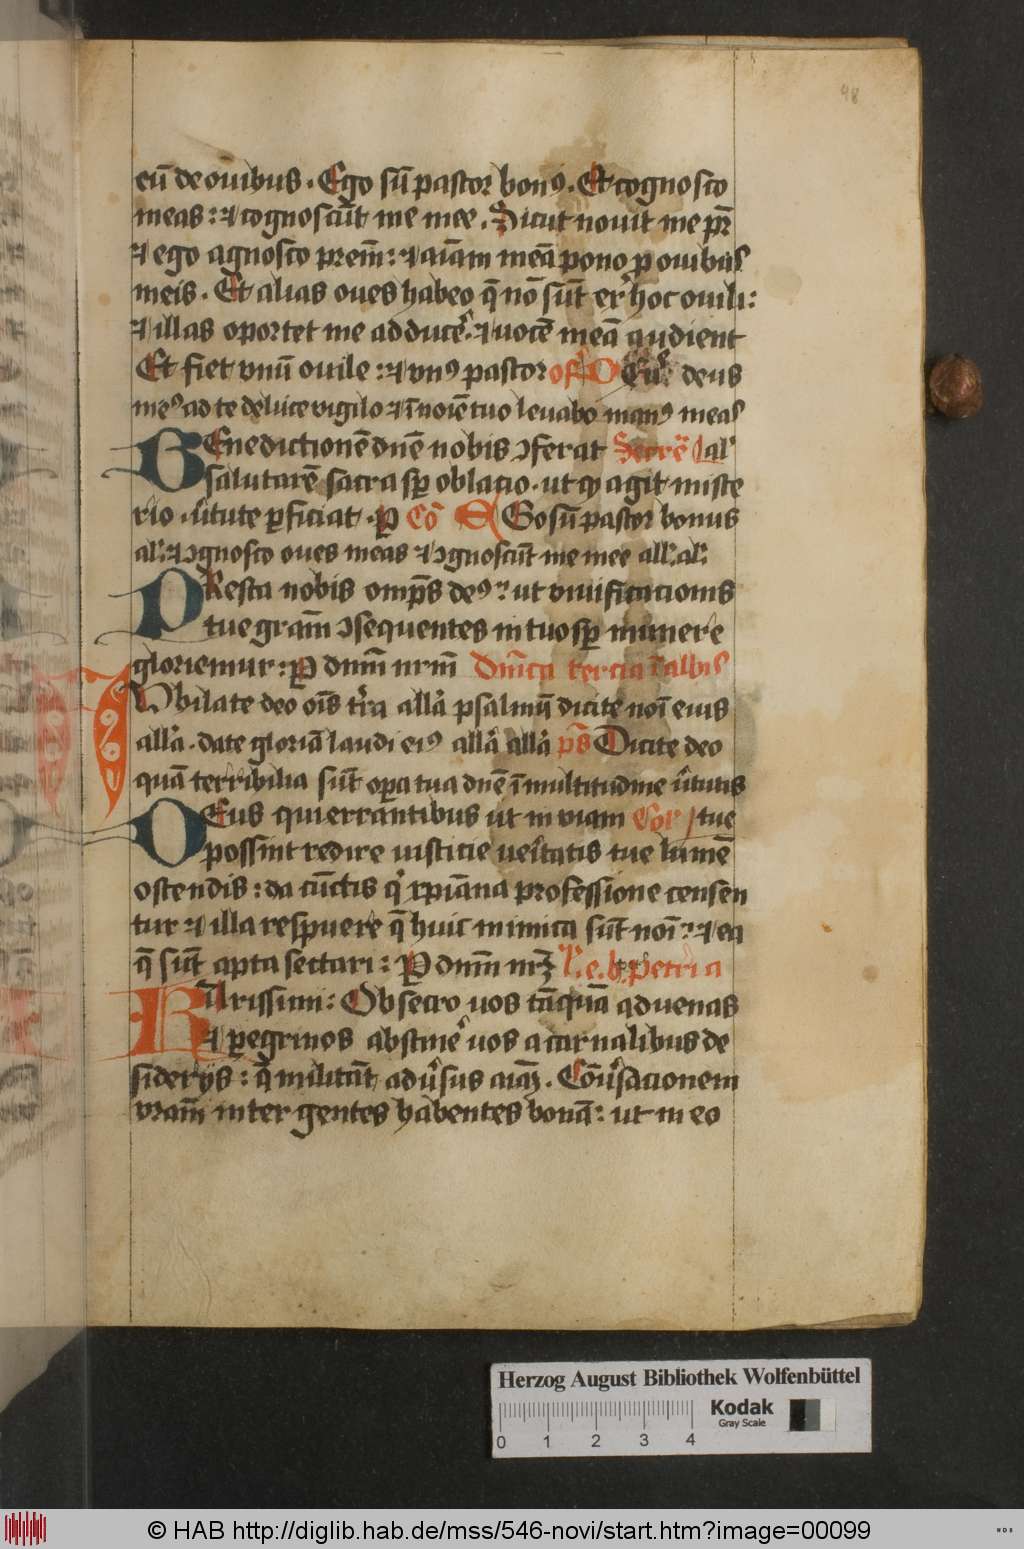 48
eū de ouibus . Ego sū pastor bonꝰ . Et cognosco
meas : ⁊ cognoscūt me mee . Sicut nouit me pr̄
⁊ ego agnosco prem̄ : ⁊ aīam meā pono ꝓ ouibus
meis . Et alias oues habeo q̄ nō sūt ex hoc ouili :
⁊ illas oportet me adducē . ⁊ uocē meā audient
Et fiet vnū ouile : ⁊ vnꝰ pastor deus
meꝰ ad te de luce vigilo ⁊ ī noīe tuo leuabo manꝰ meas
BEnedictionē dn̄e nobis ꝯferat Secrē
salutarē sacra sꝑ oblacio . ut qͥ agit miste
rio . ůtute ꝑficiat . P Cō EGo sū pastor bonus
alˀ . ⁊ ꝯgnosco oues meas ⁊ ꝯgnoscūt me mee allˀ . alˀ .
PResta nobis omp̄s deꝰ : ut viuificacionis
tue gram̄ ꝯsequentes in tuo sꝑ munere
gloriemur : P dnm̄ nrm̄ Dn̄ica tercia
IVbilate deo oīs tr̄a alla psalmū dicite noī eius
alla . date gloriā laudi eiꝰ alla alla ps̄ Dicite deo
quā terribilia sūt oꝑa tua dn̄e ī multitudine ůtutis
DEus qui errantibus ut in viam Cor / tue
possint redire iusticie ueritatis tue lumē
ostendis : da cūctis qͥ xp̄iana professione censen
tur ⁊ illa respuere q̄ huic inimica sūt noī : ⁊ ea
q̄ sūt apta sectari : P dnm̄ nrꝫ L̄ e . b . Petri a
KArissimi : Obsecro uos tāquā aduenas
⁊ ꝑegrinos abstinē uos a carnalibus de
siderijs : q̄ militāt adůsus aīaꝫ . Cōůsacionem
vram̄ inter gentes habentes bonā : ut in eo
Herzog August Bibliothek Wolfenbüttel
Kodak
Gray Scale
0 1 2 3 4
© HAB http://diglib.hab.de/mss/546-novi/start.htm?image=00099